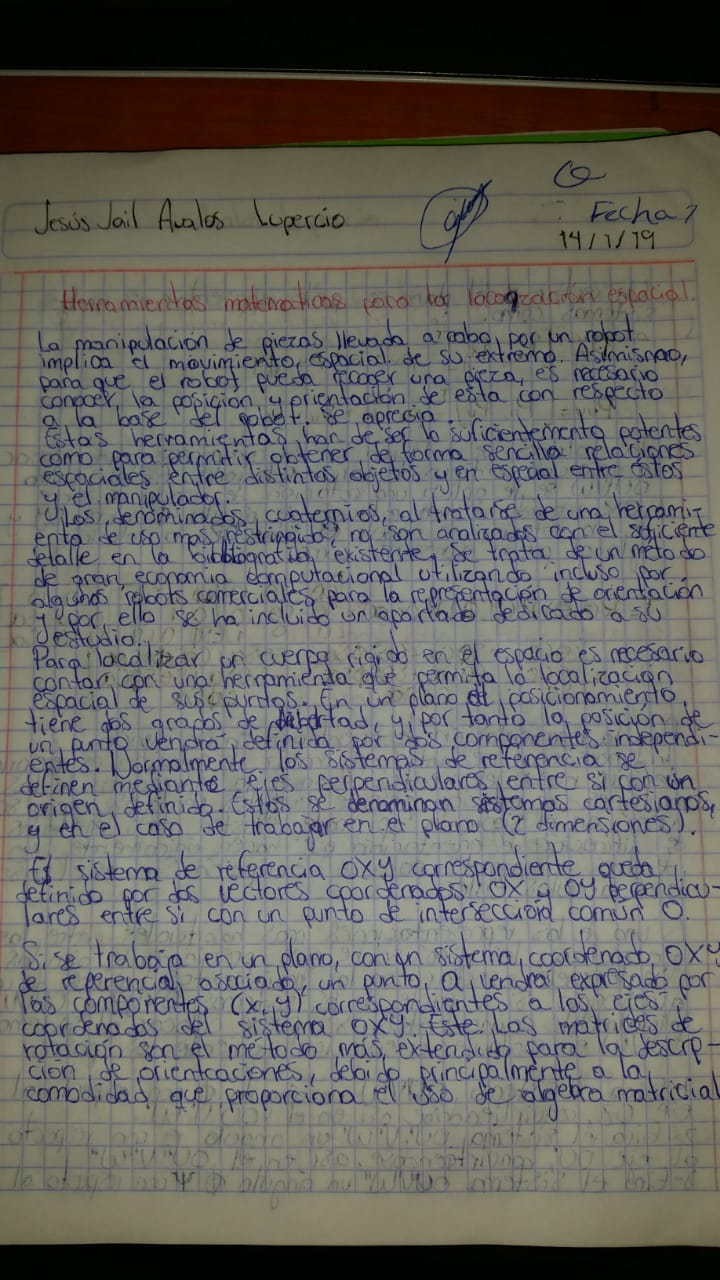 Jesús Jail Avalos Lupercio
Fecha:
14/1/19
Herramientas matematicas para la localización espacial.
La manipulación de piezas llevada a cabo por un robot
implica el movimiento espacial de su extremo. Asimismo,
para que el robot pueda recoger una pieza, es necesario
conocer la posición y orientación de esta con respecto
a la base del robot. Se aprecia.
Estas herramientas han de ser lo suficientemente potentes
como para permitir obtener de forma sencilla relaciones
espaciales entre distintos objetos y en especial entre estos
y el manipulador.
Los denominados cuaternios, al tratarse de una herrami-
enta de uso mas restringido, no son analizados con el suficiente
detalle en la bibliografia existente, se trata de un metodo
de gran economia computacional utilizando incluso por
algunos robots comerciales para la representación de orientación
y por ello se ha incluido un apartado dedicado a su
estudio.
Para localizar un cuerpo rigido en el espacio es necesario
contar con una herramienta que permita la localización
espacial de sus puntos. En un plano el posicionamiento
tiene dos grados de libertad, y por tanto la posición de
un punto vendra definida por dos componentes independi-
entes. Normalmente los sistemas de referencia se
definen mediante ejes perpendiculares entre si con un
origen definido. Estos se denominan sistemas cartesianos,
y en el caso de trabajar en el plano (2 dimensiones).
El sistema de referencia OXY correspondiente queda
definido por dos vectores coordenados OX y OY perpendicu-
lares entre si con un punto de intersección comun O.
Si se trabaja en un plano, con un sistema coordenado OXY
de referencia asociado, un punto a vendra expresado por
las componentes (x, y) correspondientes a los ejes
coordenados del sistema OXY. Este. Las matrices de
rotación son el método más extendido para la descrip-
cion de orientcaciones, debido principalmente a la
comodidad que proporciona el uso de algebra matricial